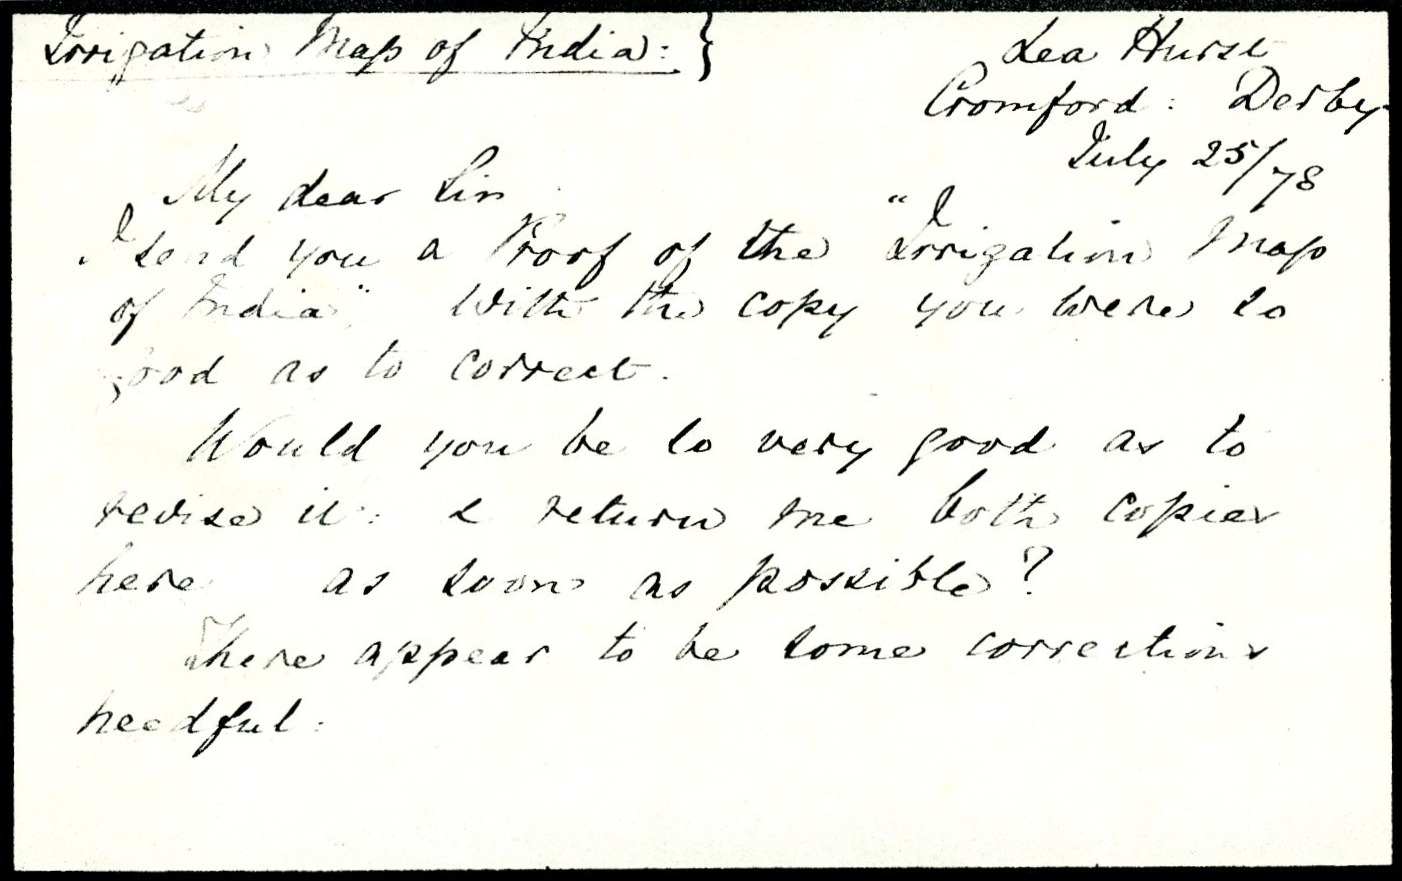 Irrigation Map of India: }
Lea Hurst
Cromford: Derby
July 25/78
My dear Sir
I send you a Proof of the "Irrigation Map
of India", with the copy you were so
good as to correct.
Would you be so very good as to
revise it: & return me both copies
here as soon as possible?
There appear to be some corrections
needful: